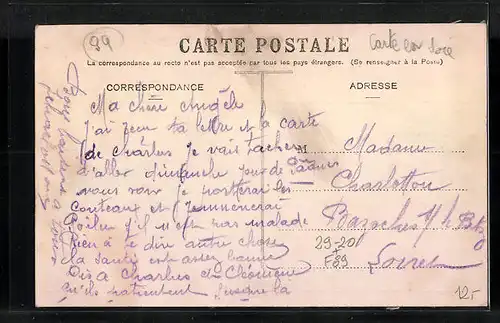 99
CARTE POSTALE
Carte en soie
La correspondance au recto n'est pas acceptée par tous les pays étrangers. (Se renseigner à la Poste)
CORRESPONDANCE
Ma chère Angèle
J'ai reçu ta lettre et la carte
de Charles je vais tacher
d'aller dimanche jour de Paques
vous voir je porterai les
couteaux et j'emmenerai
s'il n'est pas malade
Rien a te dire autre chose
la santé est assez bonne
Dis a Charles et
qu'ils patientent jusque la
Bons baisers a tous
ADRESSE
M Madame
Charlotton
Bazoches
Loiret
29-20
F89
12,-